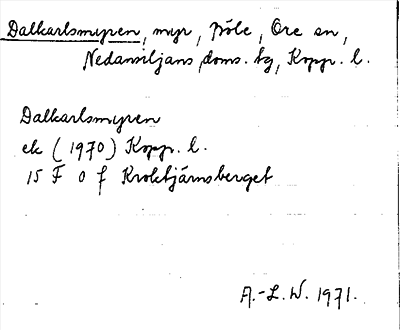 Dalkarlsmyren, myr, Ore sn,
Nedansiljans doms. tg, Kopp. l.
Dalkarlsmyren
ek (1970) Kopp. l.
15 F 0 f Kroktjärnsberget
A.-L. W. 1971.